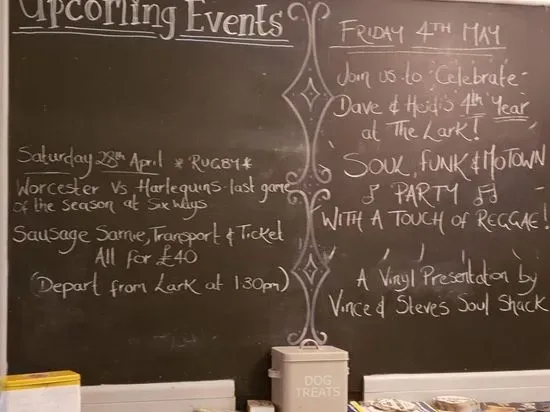 Upcoming Events
Saturday 28th April * RUGBY *
Worcester Vs Harlequins last game
of the season at Sixways
Sausage Sarnie, Transport & Ticket
All for £40
(Depart from Lark at 1 30pm)
FRIDAY 4TH MAY
Join us to Celebrate
Dave & Heidi's 4th Year
at The Lark!
SOUL, FUNK & MOTOWN
PARTY
WITH A TOUCH OF REGGAE!
A Vinyl Presentation by
Vince & Steves Soul Shack
DOG
TREATS